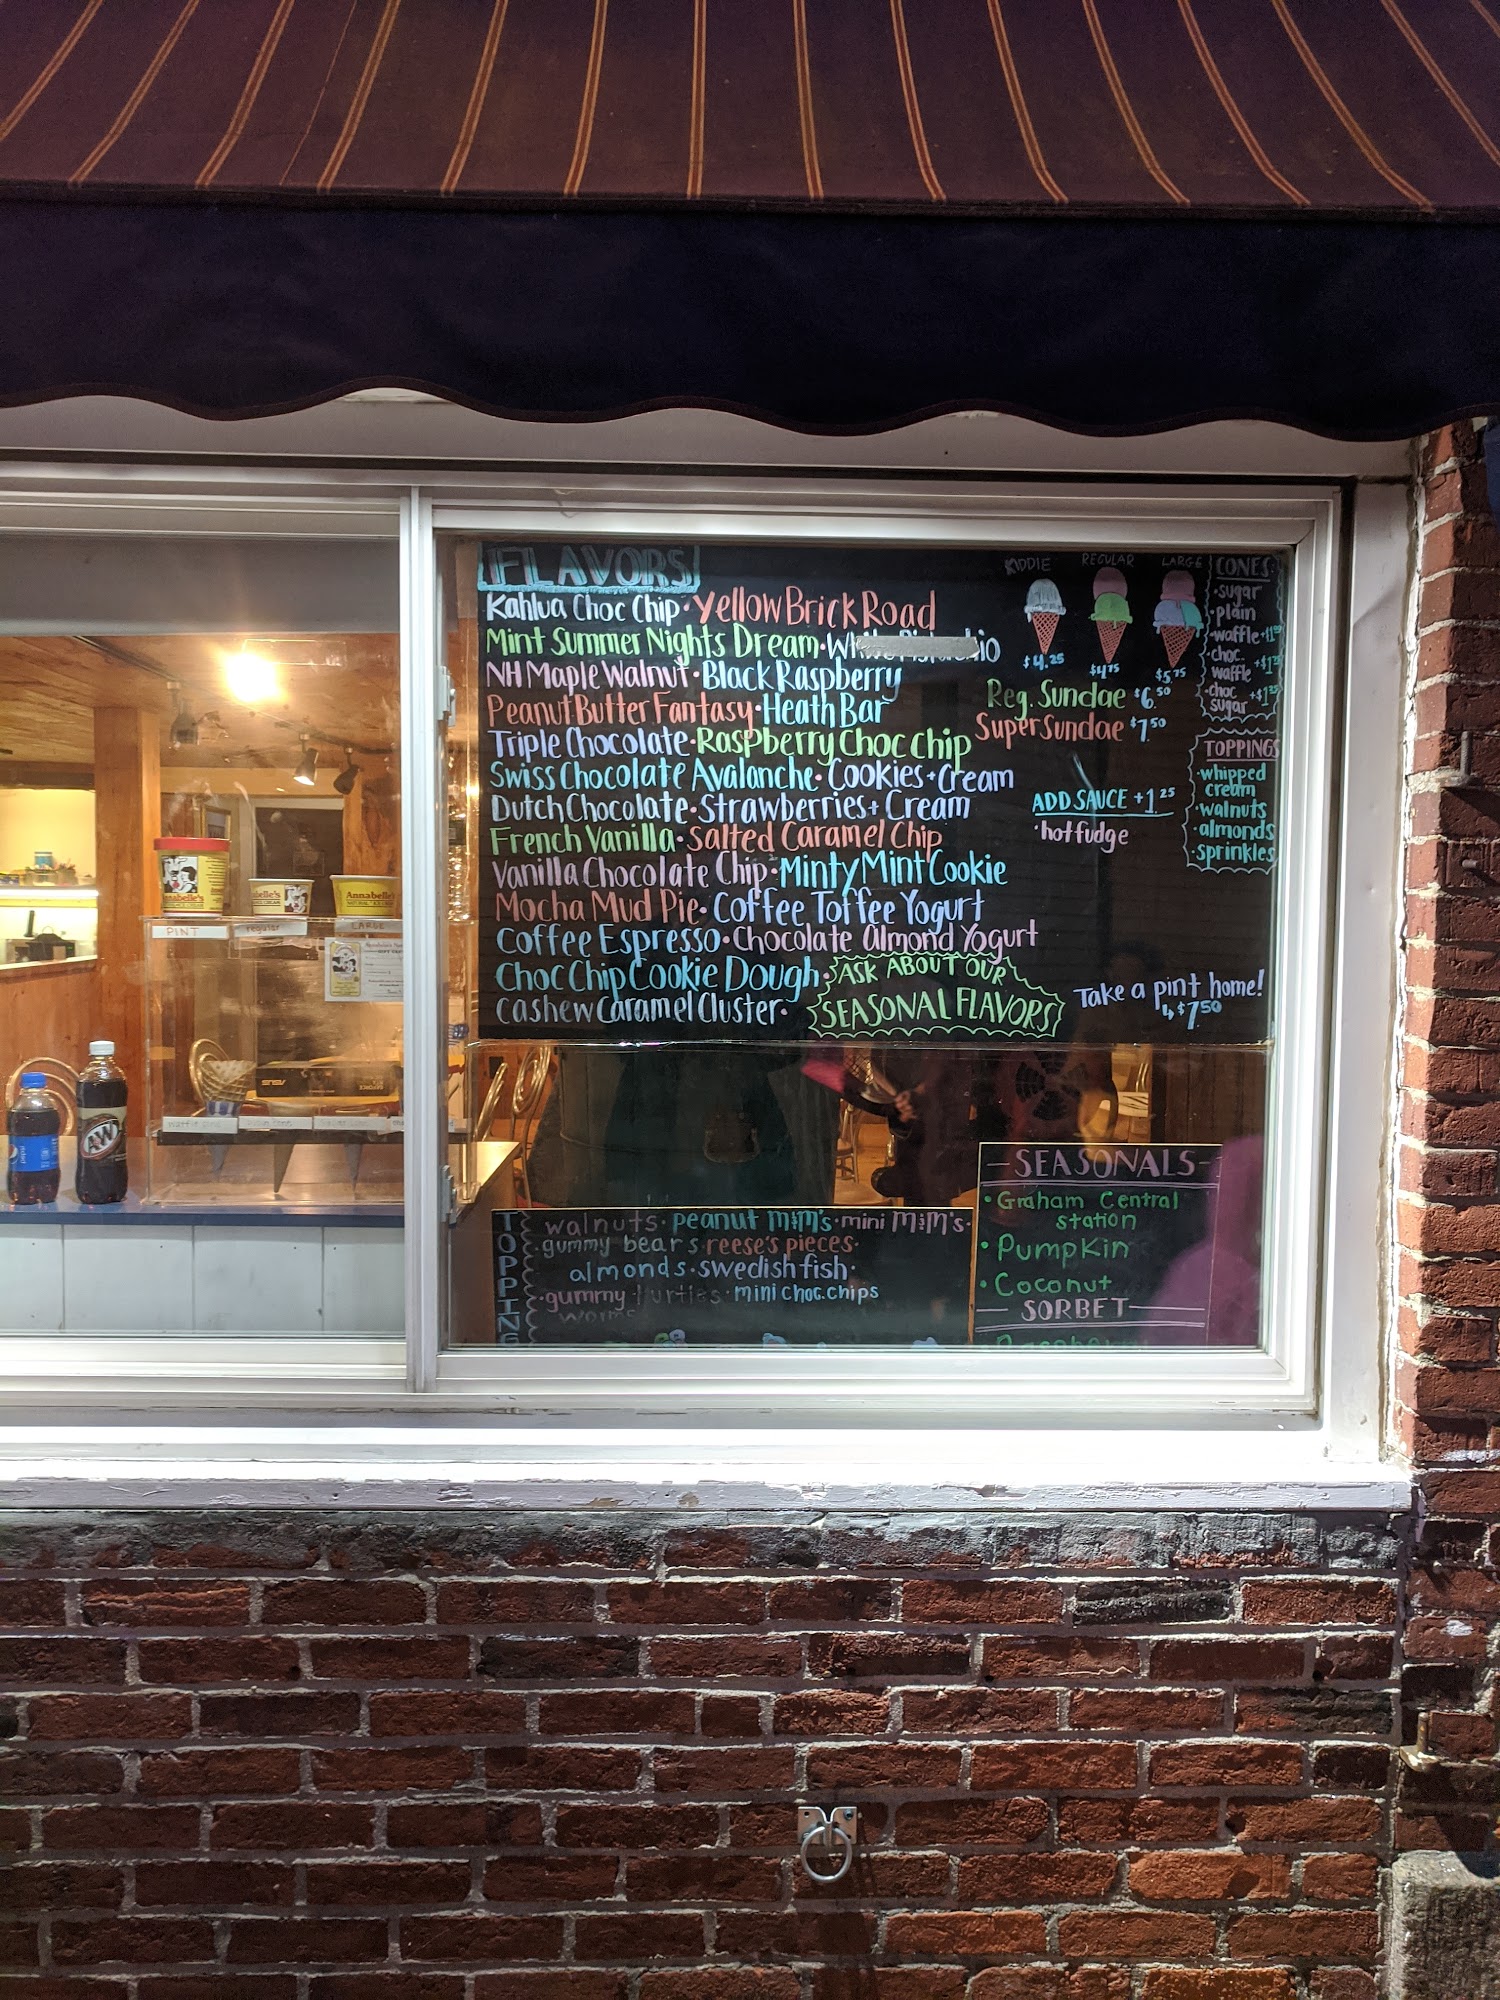 FLAVORS
Kahlua Choc Chip · Yellow Brick Road
Mint Summer Nights Dream · White Pistachio
NH Maple Walnut · Black Raspberry
Peanut Butter Fantasy · Heath Bar
Triple Chocolate · Raspberry Choc Chip
Swiss Chocolate Avalanche · Cookies + Cream
Dutch Chocolate · Strawberries + Cream
French Vanilla · Salted Caramel Chip
Vanilla Chocolate Chip · Minty Mint Cookie
Mocha Mud Pie · Coffee Toffee Yogurt
Coffee Espresso · Chocolate Almond Yogurt
Choc Chip Cookie Dough ·
Cashew Caramel Cluster ·
ASK ABOUT OUR
SEASONAL FLAVORS!
KIDDIE REGULAR LARGE
$4.25 $4.75 $5.75
Reg. Sundae $6.50
Super Sundae $7.50
ADD SAUCE +1.25
· hot fudge
Take a pint home!
$7.50
CONES:
· sugar
· plain
· waffle
· choc.
waffle
· choc
sugar
TOPPINGS
· whipped
cream
· walnuts
· almonds
· sprinkles
PINT
regular
LARGE
Annabelle's
Annabelle's
ASUS
pepsi
A&W
TOPPING
walnuts · peanut M&M's · mini M&M's ·
· gummy bears · reese's pieces ·
almonds · swedish fish ·
· gummy turtles · mini choc. chips
worms
— SEASONALS —
· Graham Central
station
· Pumpkin
· Coconut
— SORBET —